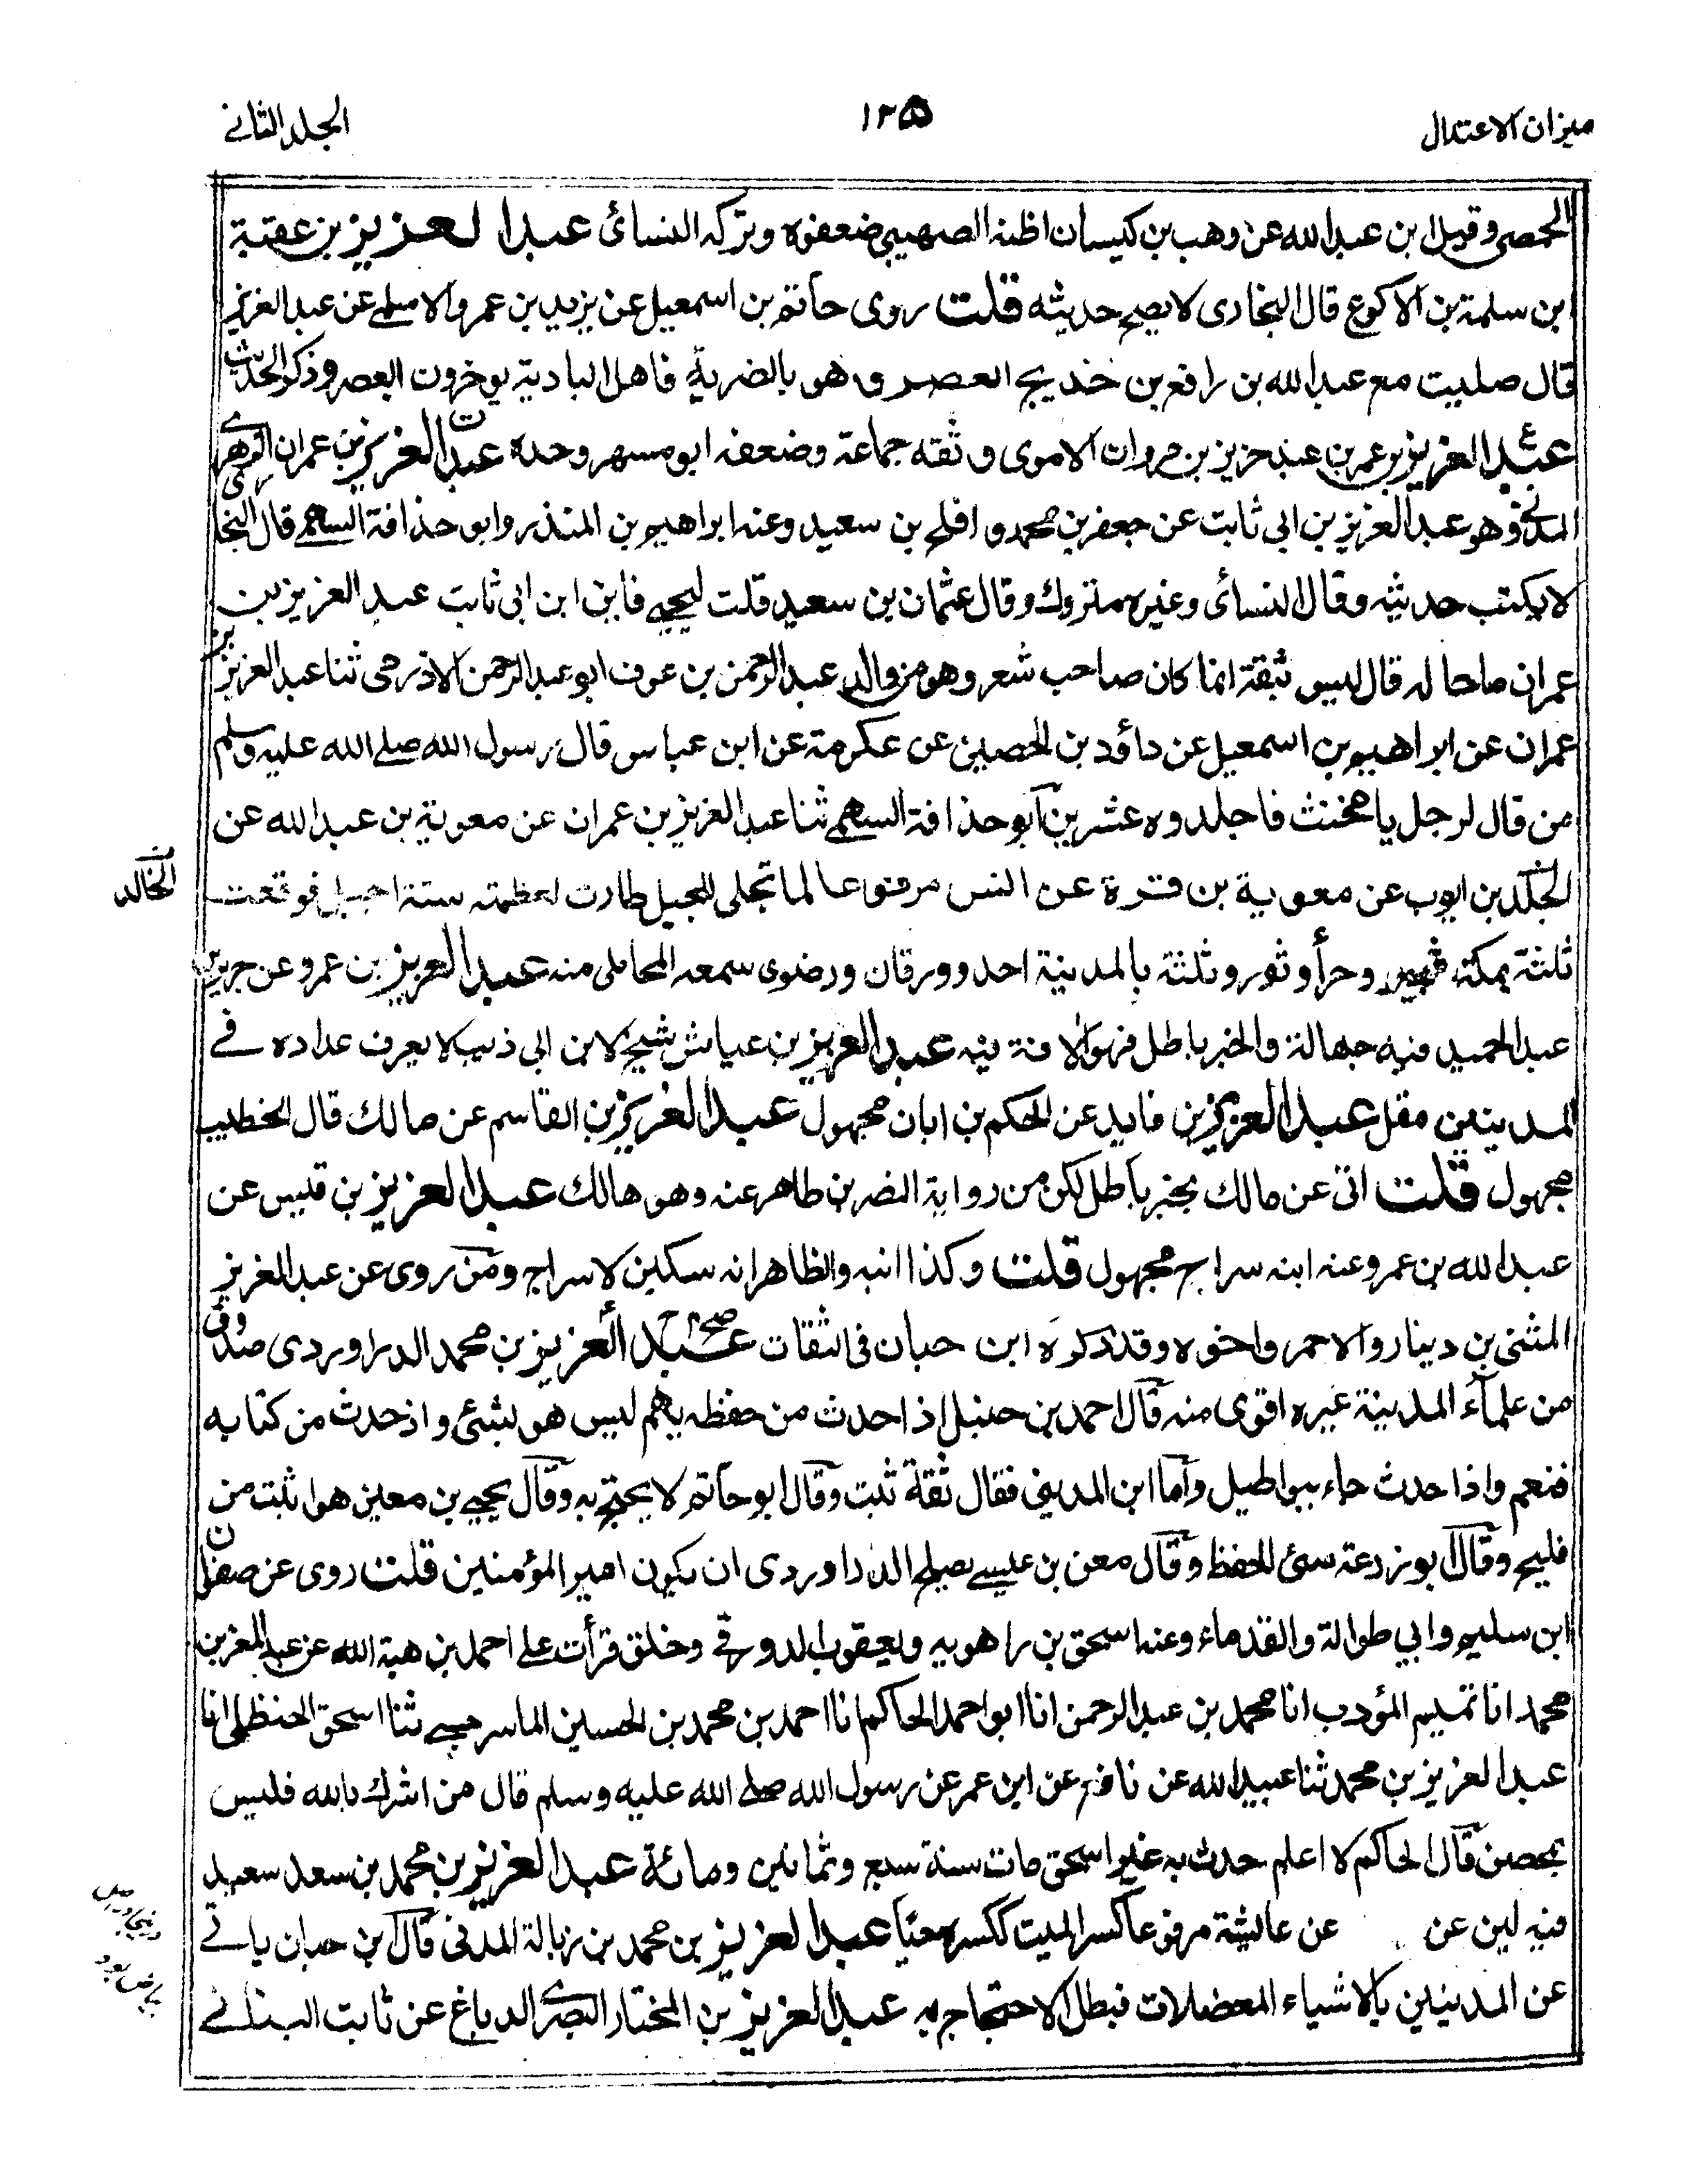 ميزان الاعتدال
١٣٥
المجلد الثاني
الحمصي وقيل ابن عبدالله عن وهب بن كيسان اظنه الصهيبي ضعفوه وتركه النسائ عبدالعزيز بن عقبة
ابن سلمة بن الاكوع قال البخارى لا يصح حديثه قلت روى حاتم بن اسمعيل عن يزيد بن عمرو الاسلمى عن عبدالعزيز
قال صليت مع عبدالله بن رافع بن خديج العصر وهو بالضرية فاهل البادية يوخرون العصر وذكر الحديث
عبدالعزيز بن عمر بن عبد حزيز بن مروان الاموى وثقه جماعة وضعفه ابو مسهر وحده عبدالعزيز بن عمران الزهرى
المدني وهو عبدالعزيز بن ابى ثابت عن جعفر بن محمد و افلح بن سعيد وعنه ابراهيم بن المنذر وابو حذافة السهمى قال البخا
لا يكتب حديثه وقال النسائى وغيره متروك وقال عثمان بن سعيد قلت ليحيى فابن ابن ابى ثابت عبدالعزيز بن
عمران ما حاله قال ليس بثقة انما كان صاحب شعر وهو من والد عبدالرحمن بن عوف ابو عبدالرحمن الاذرمى ثنا عبدالعزيز بن
عمران عن ابراهيم بن اسمعيل عن داؤد بن الحصين عن عكرمة عن ابن عباس قال رسول الله صلى الله عليه وسلم
من قال لرجل يا مخنث فاجلدوه عشرين ابو حذافة السهمى ثنا عبدالعزيز بن عمران عن معوية بن عبدالله عن
الجلد بن ايوب عن معوية بن قرة عن انس مرفوعا لما تجلى للجبل طارت لعظمته ستة اجبل فوقعت
الخالد
ثلثة بمكة ثبير وحرأ وثور وثلثة بالمدينة احد وورقان ورضوى سمعه المحاملى منه عبدالعزيز بن عمرو عن جرير بن
عبدالحميد فيه جهالة والخبر باطل فهو الافة فيه عبدالعزيز بن عياش شيخ لابن ابى ذيب لا يعرف عداده فى
المدينين مقل عبدالعزيز بن فايد عن الحكم بن ابان مجهول عبدالعزيز بن القاسم عن مالك قال الخطيب
مجهول قلت اتى عن مالك بخبر باطل لكن من رواية النضر بن طاهر عنه وهو هالك عبدالعزيز بن قيس عن
عبدالله بن عمرو عنه ابنه سراج مجهول قلت وكذا ابنه والظاهر انه سكين لا سراج ومن روى عن عبدالعزيز
المثنى بن دينار والاحمر واخوه وقد ذكره ابن حبان فى الثقات عبدالعزيز بن محمد الدراوردى صدوق
من علمآء المدينة غيره اقوى منه قال احمد بن حنبل اذا حدث من حفظه يهم ليس هو بشئ واذ حدث من كتابه
فنعم واذا حدث جاء ببواطيل وآما ابن المدينى فقال ثقة ثبت وقال ابو حاتم لا يحتج به وقال يحيى بن معين هو اثبت من
فليح وقال ابو زرعة سئ الحفظ وقال معن بن عيسى يصلح الدراوردى ان يكون امير المؤمنين قلت روى عن صفوان
ابن سليم وابي طوالة والقدماء وعنه اسحق بن راهويه ويعقوب الدورقى وخلق قرأت على احمد بن هبة الله عن عبدالمعز بن
محمد انا تميم المؤدب انا محمد بن عبدالرحمن انا ابو احمد الحاكم انا احمد بن محمد بن الحسين الماسرجسى ثنا اسحق الحنظلى انا
عبدالعزيز بن محمد ثنا عبيدالله عن نافع عن ابن عمر عن رسول الله صلى الله عليه وسلم قال من اشرك بالله فليس
بحصن قال الحاكم لا اعلم حدث به غير اسحق مات سنة سبع وثمانين ومائة عبدالعزيز بن محمد بن سعد سعيد
فيه لين عن عن عايشة مرفوعا كسر الميت ككسره حيّا عبدالعزيز بن محمد بن زبالة المدنى قال ابن حبان ياتى
عن المدينين بالاشياء المعضلات فبطل الاحتجاج به عبدالعزيز بن المختار البصرى الدباغ عن ثابت البنانى